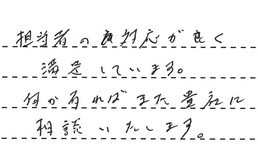 担当者の良対応が良く
満足しています。
何か有ればまた貴社に
相談いたします。